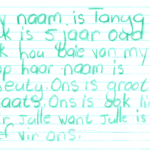 y naam is Tanya
k is 5 jaar oud
k hou baie van my
p haar naam is
heutu. Ons is groot
aats. Ons is ook li
r Julle want Julle is
f vir ons.